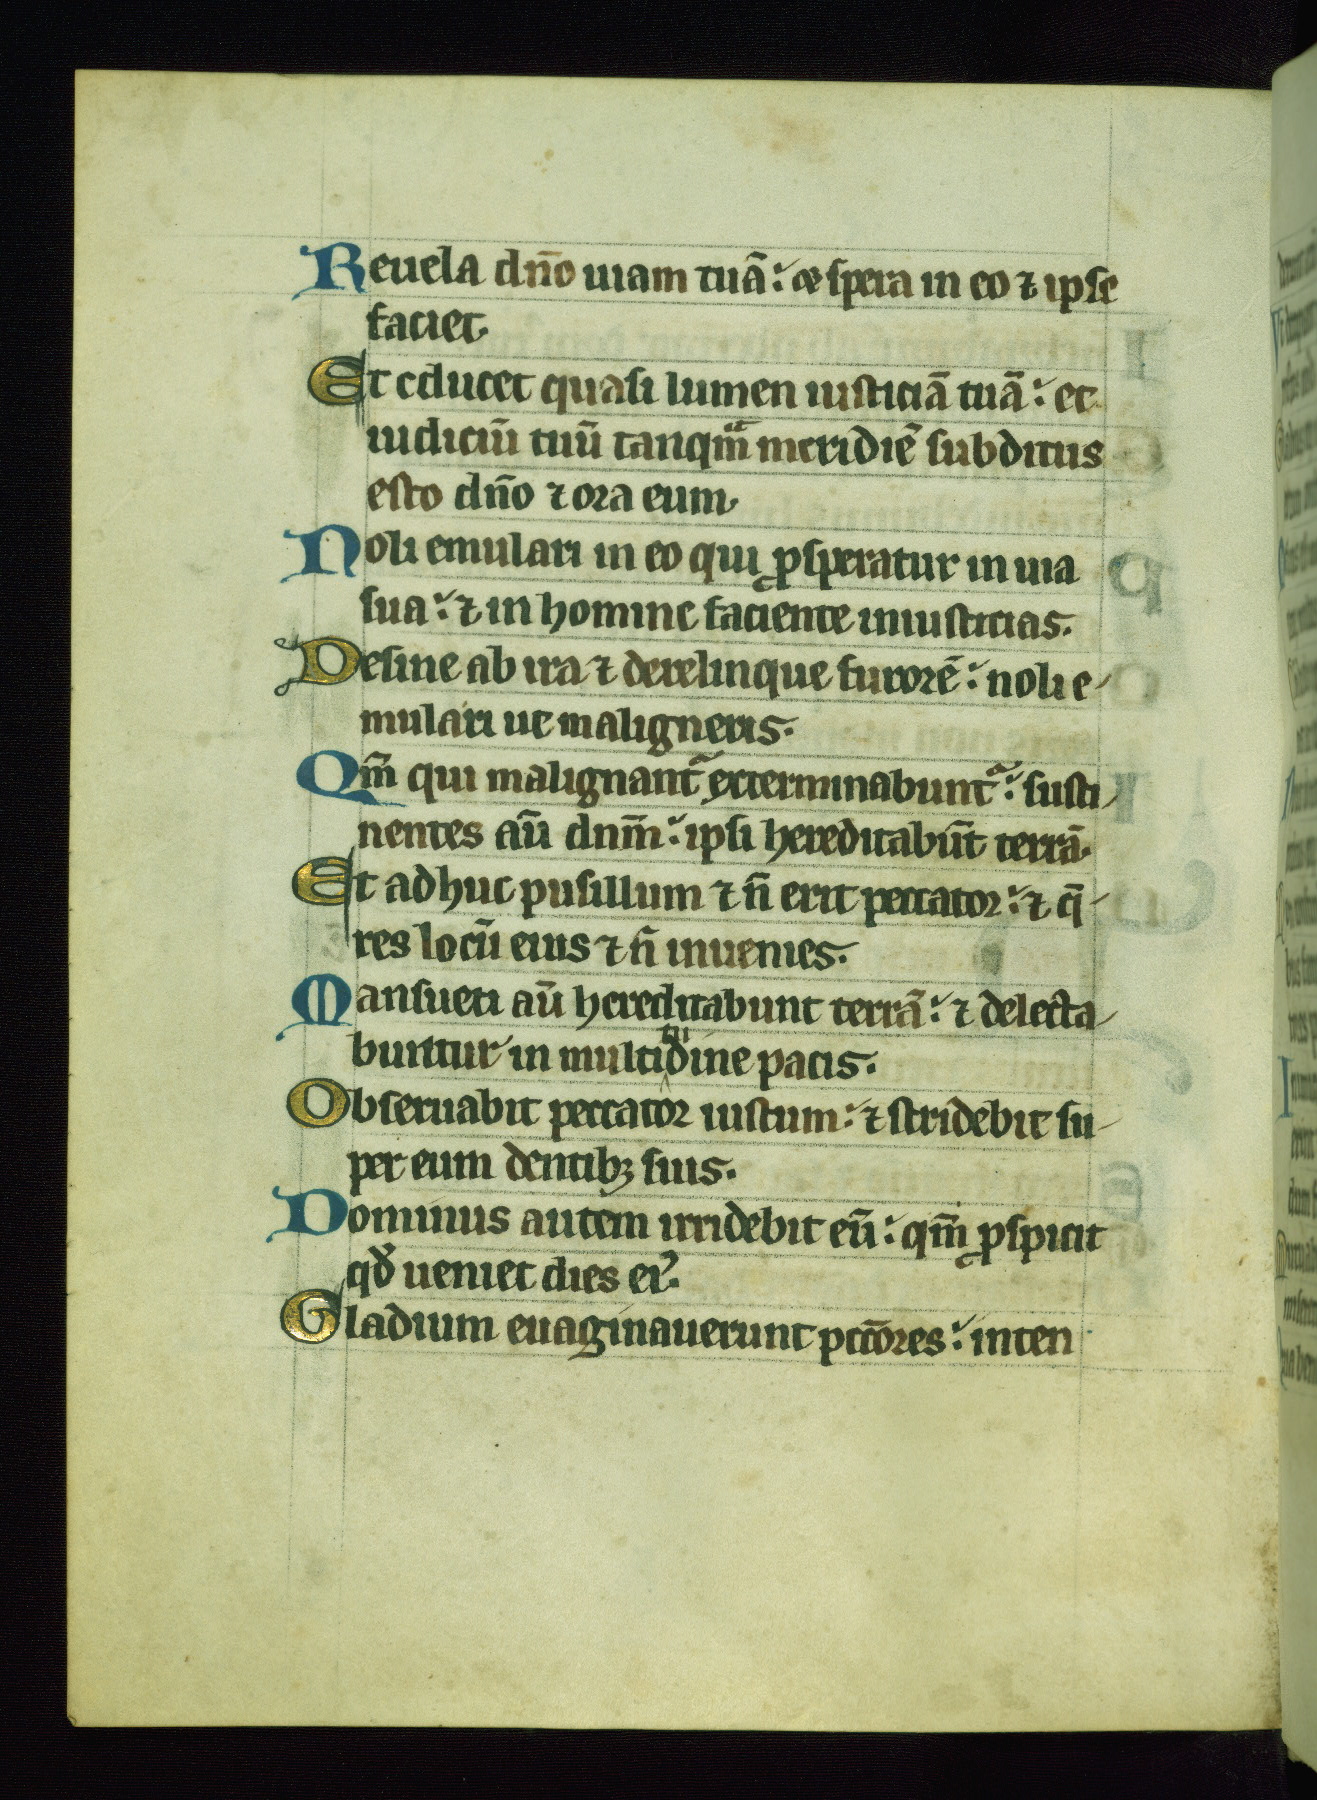 Reuela dn̄o uiam tuā: et spera in eo ⁊ ipse
faciet.
Et educet quasi lumen iusticiā tuā: et
iudiciū tuū tanqm̄ meridiē subditus
esto dn̄o ⁊ ora eum.
Noli emulari in eo qui ꝓsperatur in uia
sua: ⁊ in homine faciente iniusticias.
Desine ab ira ⁊ derelinque furorē: noli e-
mulari ut maligneris.
Qm̄ qui malignant᷑ exterminabunt᷑: susti-
nentes aū dnm̄: ipsi hereditabūt terrā.
Et adhuc pusillum ⁊ n̄ erit peccator: ⁊ q̄-
res locū eius ⁊ n̄ inuenies.
Mansueti aū hereditabunt terrā: ⁊ delecta-
buntur in multitudine pacis.
Obseruabit peccator iustum: ⁊ stridebit su-
per eum dentibꝫ suis.
Dominus autem irridebit eū: qm̄ ꝓspicit
qd̓ ueniet dies ei᷒.
Gladium euaginauerunt pcc̄ores: inten